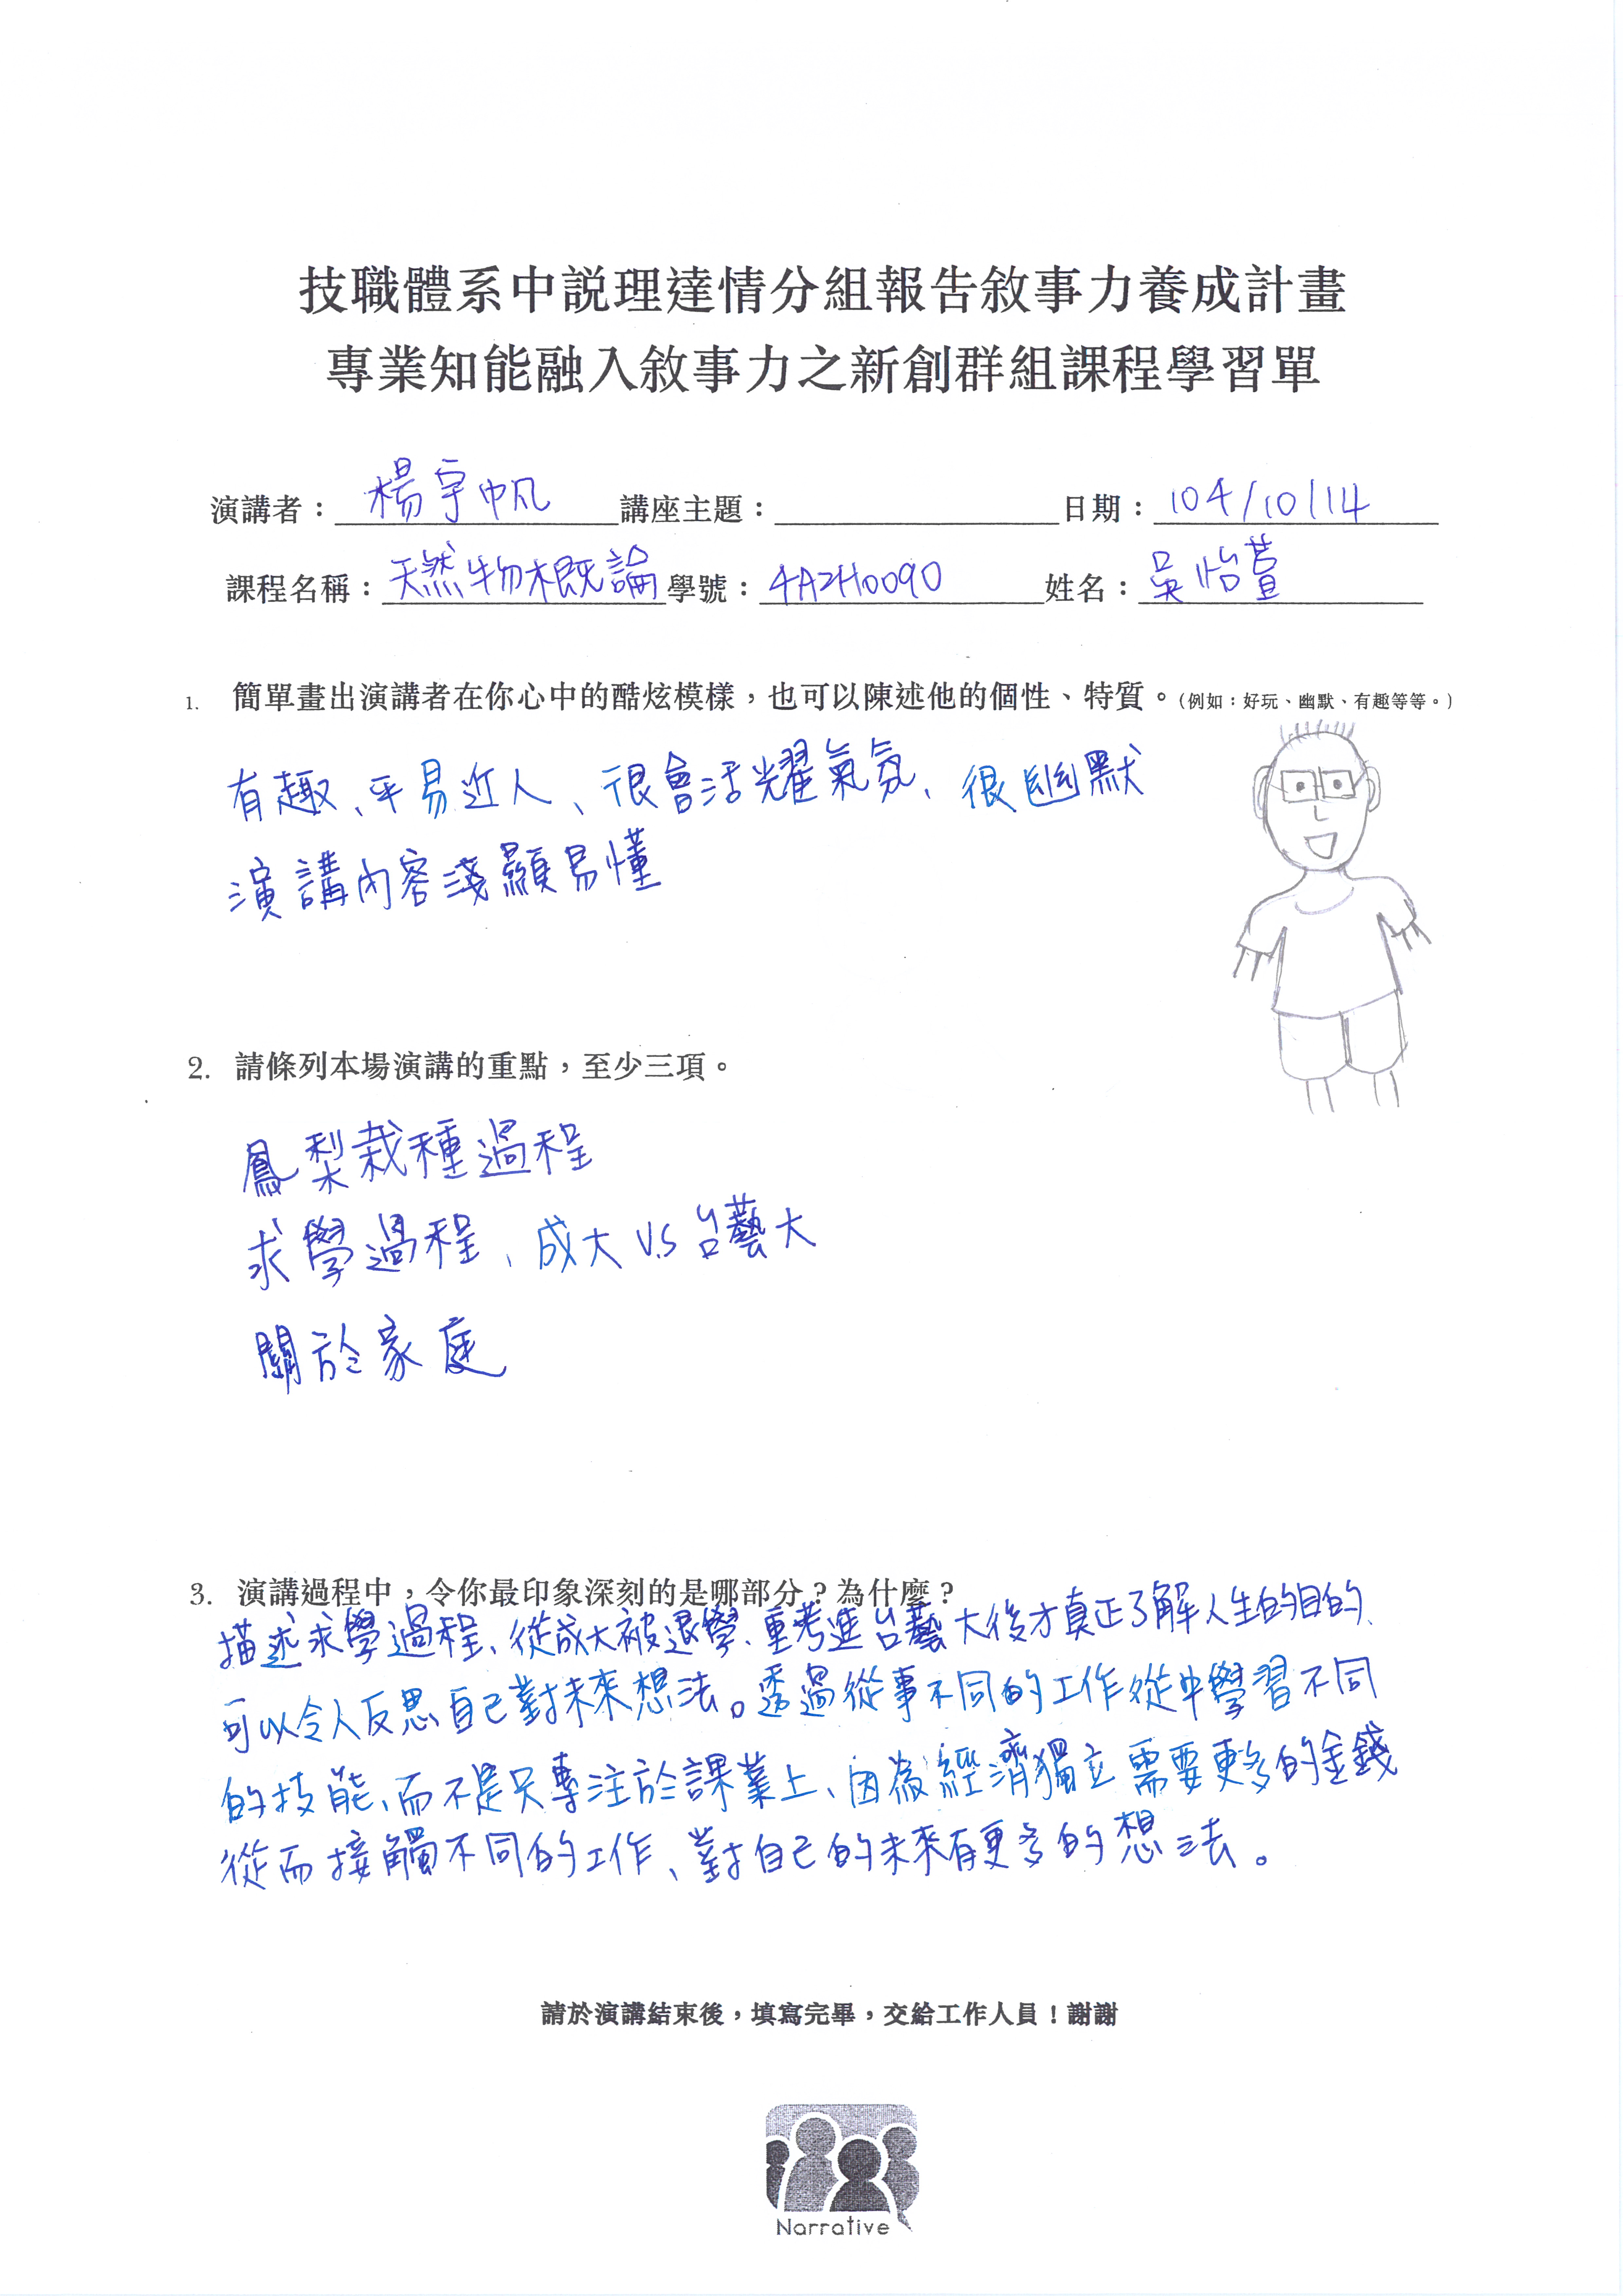 技職體系中説理達情分組報告敘事力養成計畫
專業知能融入敘事力之新創群組課程學習單
演講者：楊宇帆 講座主題： 日期：104/10/14
課程名稱：天然物概論 學號：4A2H0090 姓名：吳怡萱
1. 簡單畫出演講者在你心中的酷炫模樣，也可以陳述他的個性、特質。(例如：好玩、幽默、有趣等等。)
有趣、平易近人、很會活耀氣氛、很幽默
演講內容淺顯易懂
2. 請條列本場演講的重點，至少三項。
鳳梨栽種過程
求學過程、成大V.S台藝大
關於家庭
3. 演講過程中，令你最印象深刻的是哪部分？為什麼？
描述求學過程、從成大被退學、重考進台藝大後才真正了解人生的目的、
可以令人反思自己對未來想法。透過從事不同的工作從中學習不同
的技能、而不是只專注於課業上、因為經濟獨立需要更多的金錢
從而接觸不同的工作、對自己的未來有更多的想法。
請於演講結束後，填寫完畢，交給工作人員！謝謝
Narrative